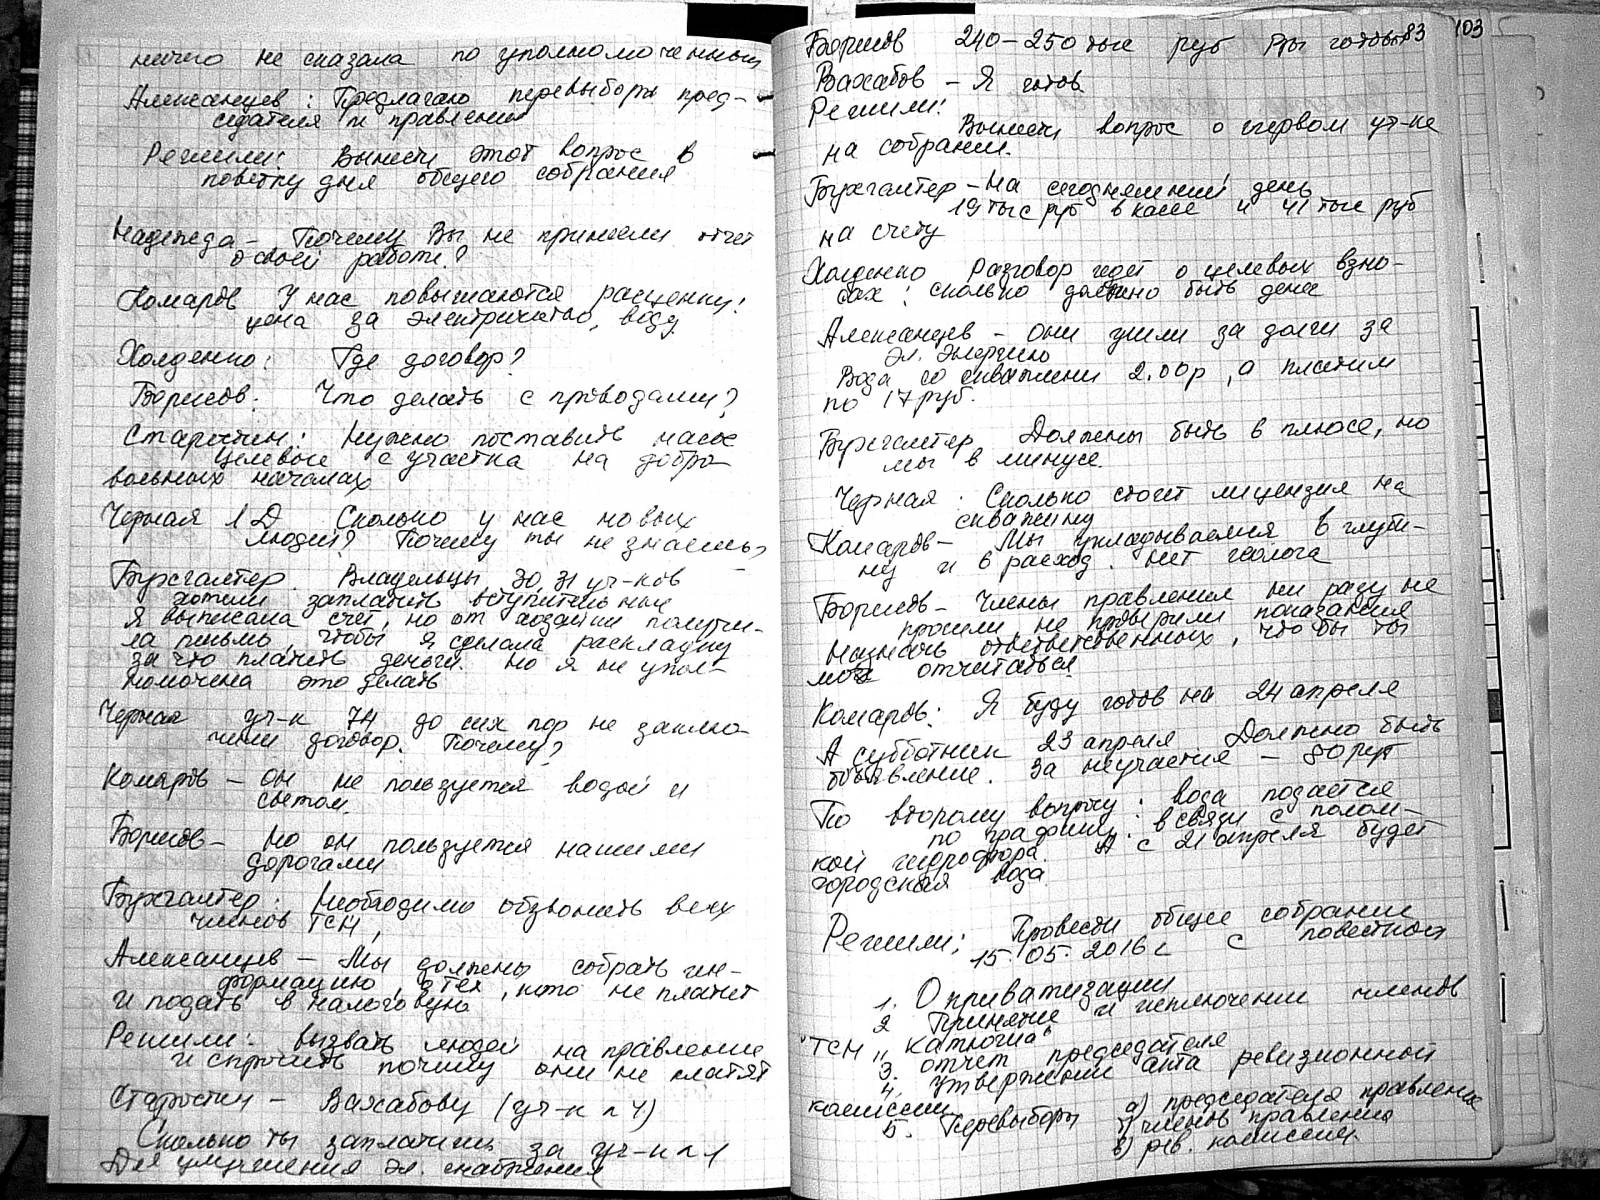 ничего не сказала по уполномоченным
Александцев: Предлагаю перевыборы пред-
седателя и правления
Решили: Вынести этот вопрос в
повестку дня общего собрания
Надежда - Почему Вы не принесли отчет
о своей работе?
Комаров У нас повышаются расценки:
цена за электричество, воду
Холденко: Где договор?
Борисов: Что делать с проводами?
Старостин: Нужно поставить насос
целевые с участка на добро-
вольных началах
Черная Л Д Сколько у нас новых
людей? Почему ты не знаешь?
Бухгалтер. Владельцы 30, 31 уч-ков
хотели заплатить вступительные
Я выписала счет, но от хозяйки получи-
ла письмо, чтобы я сделала раскладку
за что платить деньги. Но я не упол-
номочена это делать
Черная уч-к 74 до сих пор не заклю-
чили договор. Почему?
Комаров - он не пользуется водой и
светом.
Борисов - Но он пользуется нашими
дорогами
Бухгалтер: Необходимо обзвонить всех
членов ТСН,
Александцев - Мы должны собрать ин-
формацию, о тех, кто не платит
и подать в налоговую
Решили: вызвать людей на правление
и спросить почему они не платят
Старостин - Вахабову (уч-к №4)
Сколько ты заплатишь за уч-к №1
Для улучшения эл. снабжения
83 103
Борисов 240-250 тыс руб Ты готов
Вахабов - Я готов
Решили:
Вынести вопрос о первом уч-ке
на собрании.
Бухгалтер - На сегодняшний день
19 тыс руб в кассе и 41 тыс руб
на счету
Холденко Разговор идет о целевых взно-
сах: сколько должно быть денег
Александцев - они ушли за долги за
эл. энергию
Вода со скважени 2.00р, а платим
по 17 руб.
Бухгалтер Должны быть в плюсе, но
мы в минусе.
Черная: Сколько стоит лицензия на
скважину
Комаров - Мы укладываемся в глуби-
ну и в расход. Нет геолога
Борисов - Члены правления ни разу не
просили не проверили показания
Назначь ответственных, что бы ты
мог отчитаться.
Комаров: Я буду готов на 24 апреля
А субботник 23 апреля Должно быть
объявление. За неучастие - 80 руб
По второму вопросу: вода подается
по графику: в связи с полом-
кой гидрофора. А с 21 апреля будет
городская вода.
Решили: Провести общее собрание
15.05.2016 г с повесткой
1. О приватизации
2 Принятие и исключении членов
ТСН „Катюша"
3. отчет председателя
4. утверждении акта ревизионной
комиссии
5. Перевыборы а) председателя правления
б) членов правления
в) рев. комиссии.